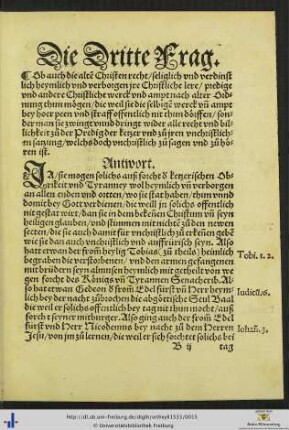 Die Dritte Frag.
¶ Ob auch die altē Christen recht / seliglich vnd verdinst
lich heymlich vnd verborgen jre Christliche lere / predige
vnd andere Christliche werck vnd ampt nach alter Ord-
nung thūn mögen / die weil sie die selbigē werck vn̄ ampt
bey hoer peen vnd straff offentlich nit thūn dörffen / son-
der man sie zwingt vnnd dringt wider alle recht vnd bil-
lichkeit zū der Predig der ketzer vnd zū jren vnchristlich-
en satzung / welchs doch vnchristlich zū sagen vnd zū hö-
ren ist.
Antwort.
JA / sie mogen solichs auß forcht d' ketzerischen Ob-
erkeit vnd Tyranney wol heymlich vn̄ verborgen
an allen enden vnd orten / wo sie stat haben / thūn vnnd
domit bey Gott verdienen / die weil jn solichs offentlich
nit gestat wirt / dan sie in dem bekēnen Christum vn̄ seyn
heiligen glauben / vnd stimmen nimmichtē zū den newen
secten / die sie auch damit für vnchristlich zū erkēnen gebē
wie sie dan auch vnchristlich vnd auffrürisch seyn. Also
hatt etwan der from̄ heylig Tobias / zū theils heimlich
begraben die verstorbenen / vnd den armen gefangenen
mit brüdern seyn almusen heymlich mit getheilt von we
gen forcht des Königs vn̄ Tyrannen Senacherib. Al-
so hat etwan Gedeon d' from̄ Edel fürst vn̄ Herr heym-
lich bey der nacht zūbrochen die abgöttische Seul Baal
die weil er solichs offentlich bey tag mit thūn mocht / auß
forcht seyner mitburger. Also ging auch der from̄ Edel
fürst vnd Herr Nicodemus bey nacht zū dem Herren
Jesu / von jm zū lernen / die weil er sich forchtet solichs bei
Tobi. 1. 2.
Iudicū. 6.
Iohan. 3.
B ij tag
http://dl.ub.uni-freiburg.de/diglit/ottheyll1533/0015
© Universitätsbibliothek Freiburg